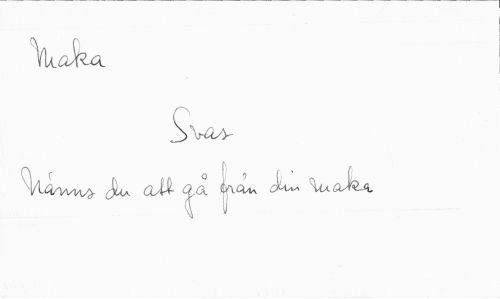 Maka
Svar
Nänns du att gå från din maka